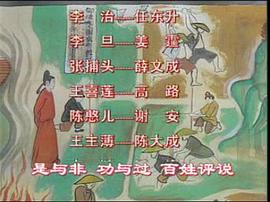 李 治——任东升
李 旦——姜 置
张捕头——薛文成
王喜莲——高 路
陈憨儿——谢 安
王主薄——陈大成
是与非 功与过 百姓评说